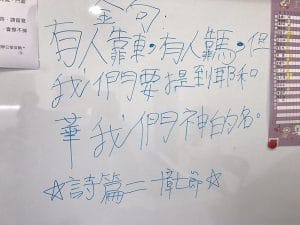 金句:
有人靠車,有人靠馬,但
我們要提到耶和
華我們神的名。
☆詩篇二十章七節☆